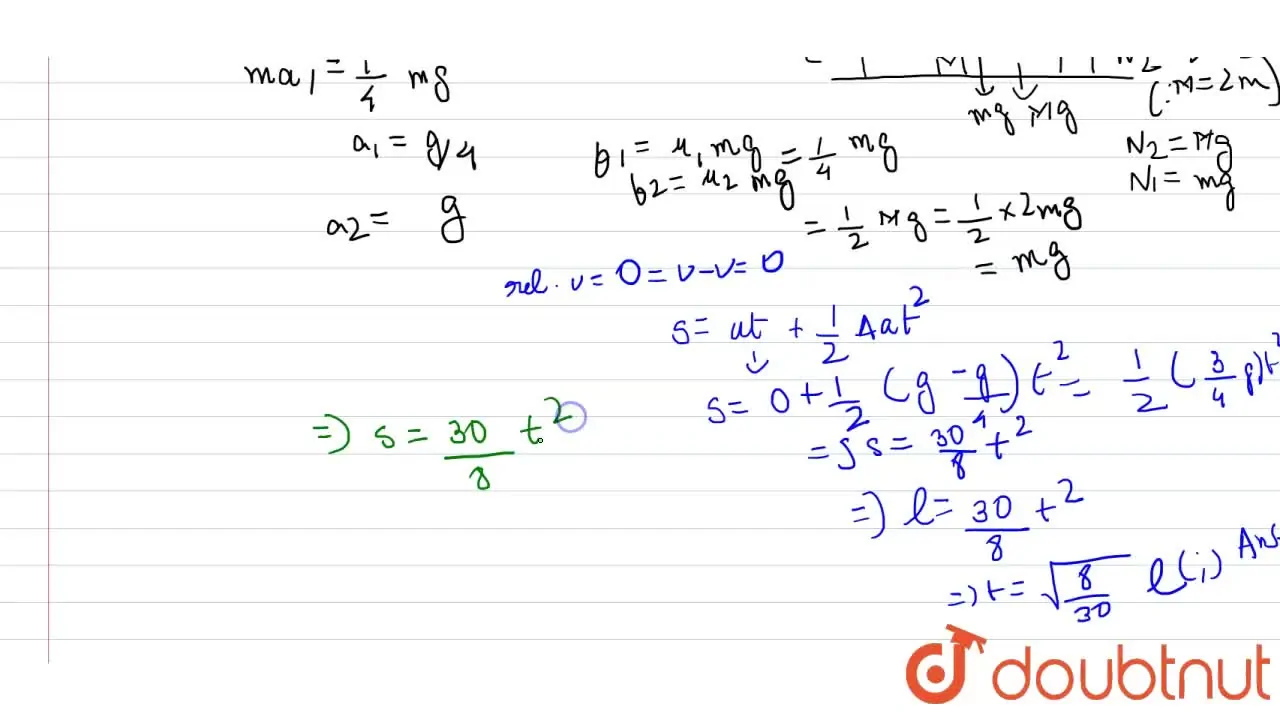 ma₁ = 1/4 mg
a₁ = g/4
a₂ = g
mg Mg
(∵ M = 2m)
N₂ = Mg
N₁ = mg
f₁ = μ₁ mg = 1/4 mg
f₂ = μ₂ mg
= 1/2 Mg = 1/2 × 2mg
= mg
rel. v = 0 = v - v = 0
s = ut + 1/2 Δat²
s = 0 + 1/2 (g - g/4) t² = 1/2 (3/4 g) t²
=> s = 30/8 t²
=> l = 30/8 t²
=> t = √8/30 l (i) Ans
=> s = 30/8 t²
doubtnut